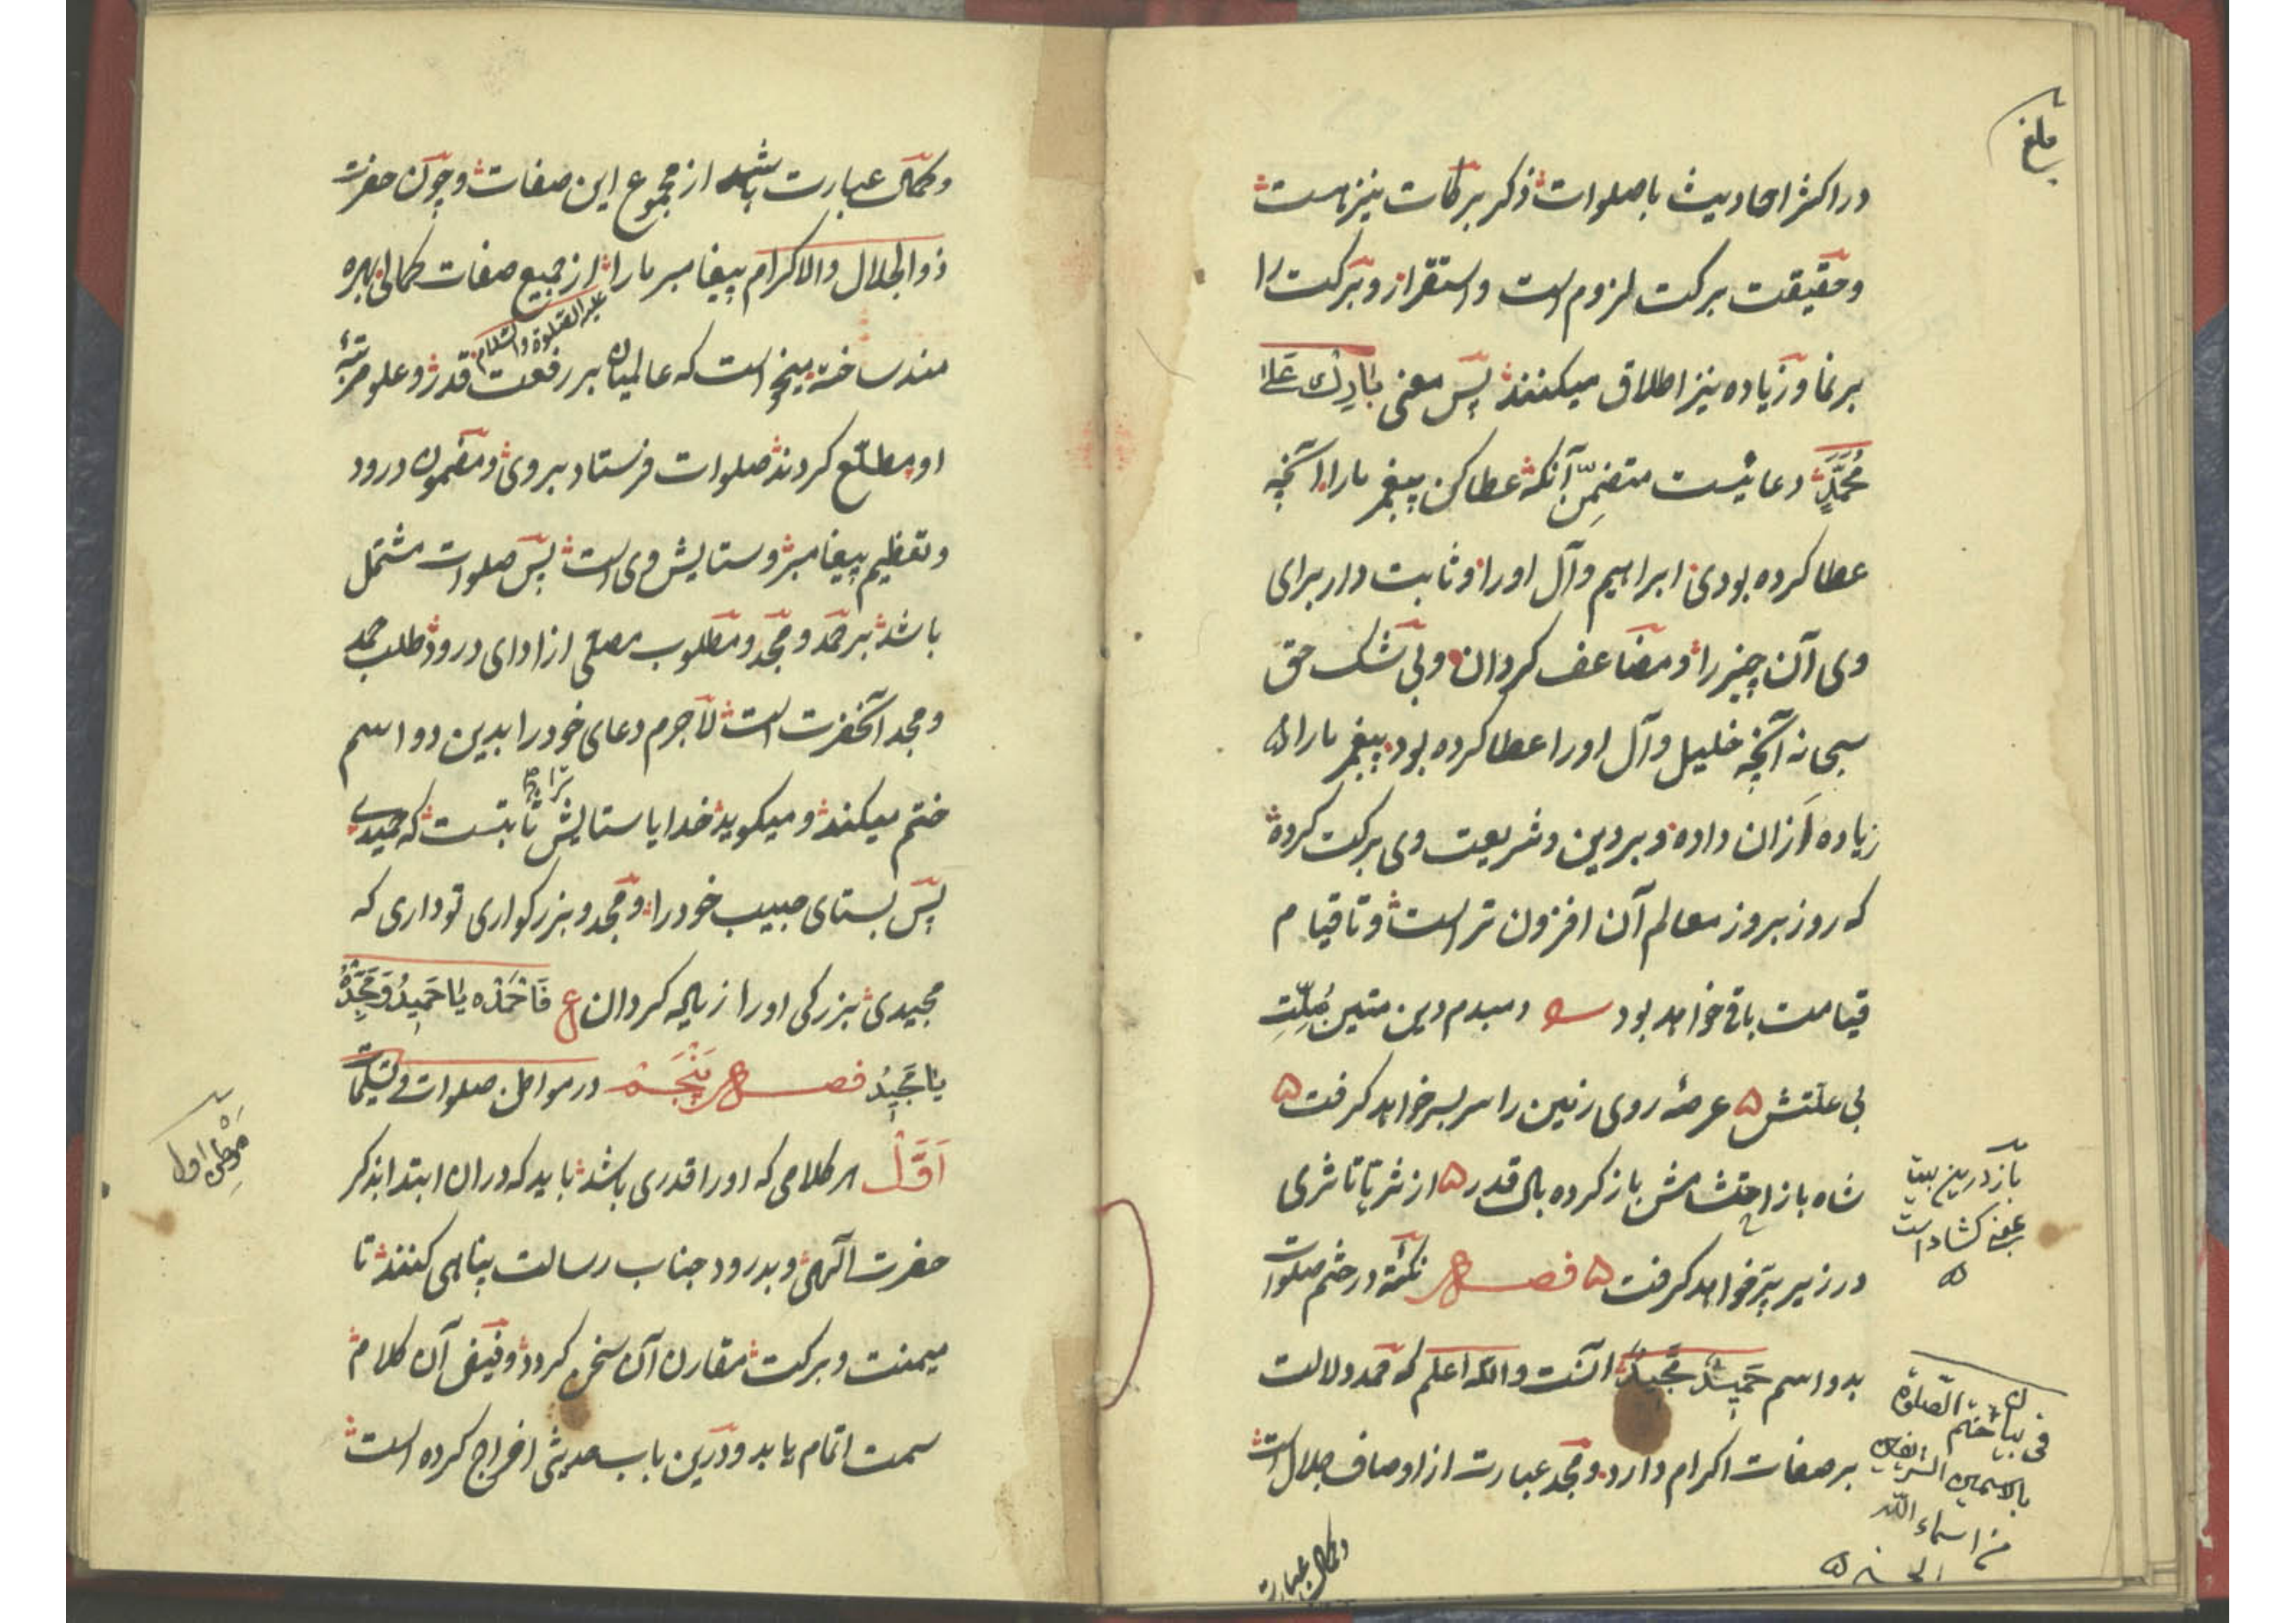 در اکثر احادیث با صلوات ذکر برکات نیز هست
و حقیقت برکت لزوم است و استقرار و برکت را
بر نما و زیاده نیز اطلاق میکنند پس معنی بَارِكْ عَلَىٰ
مُحَمَّدٍ دعائیست متضمّن آنکه عطا کن پیغمبر ما را آنچه
عطا کرده بودی ابراهیم و آل او را و ثابت دار برای
وی آن چیز را و مضاعف کردان و بی شک حق
سبحانه آنچه خلیل و آل او را عطا کرده بود پیغمبر ما را
زیاده ازان داده و بر دین و شریعت وی برکت کرده
که روز بروز معالم آن افزون تر است و تا قیام
قیامت باقی خواهد بود دمبدم دین متین مُلّتِ
بی علتش عرصهٔ روی زمین را سر بسر خواهد کرفت
شاه باز احتشامش باز کرده بال قدر از ثریا تا ثری
در زیر پر خواهد کرفت فصل نکتهٔ در ختم صلوات
بدو اسم حَمِيدٌ مَجِيدٌ آنست والله اعلم که حمد دلالت
بر صفات اکرام دارد و مجد عبارت از اوصاف جلال است
و کمال عبارت
باز درین بیت
بمعنی کشاد است
فی بیان ختم الصلوة
بالاسمین الشریفین
من اسماء الله
الحسنی
و کمال عبارت باشد از مجموع این صفات و چون حضرت
ذو الجلال والاکرام پیغامبر ما را از جمیع صفات کمال بهره
مند ساخته میخواست که عالمیان بر رفعت قدر و علو مرتبهٔ
علیه الصلوة والسلام
او مطلّع کردند صلوات فرستاد بر وی و مضمون درود
و تعظیم پیغامبر و ستایش وی است پس صلوات مشتمل
باشد بر حمد و مجد و مطلوب مصلی از ادای درود طلب حمد
و مجد آنحضرت است لاجرم دعای خود را بدین دو اسم
ختم میکند و میکوید خدایا ستایش ترا ثابتست که حمیدی
پس بستای حبیب خود را و مجد و بزرکواری تو داری که
مجیدی بزرکی او را زیاده کردان ع فَاحْمَدْه يَا حَمِيدُ وَمَجِّدْهُ
يَا مَجِيدُ فصل پَنْجَم در مواطن صلوات و تسلیمات
اَوَّلْ هر کلامی که او را قدری باشد باید که دران ابتدا بذکر
حضرت الهی و بدرود جناب رسالت پناهی کنند تا
میمنت و برکت مقارن آن سخن کردد و فیض آن کلام
سمت اتمام یابد و درین باب حدیثی اخراج کرده است
مَوْطِن اول